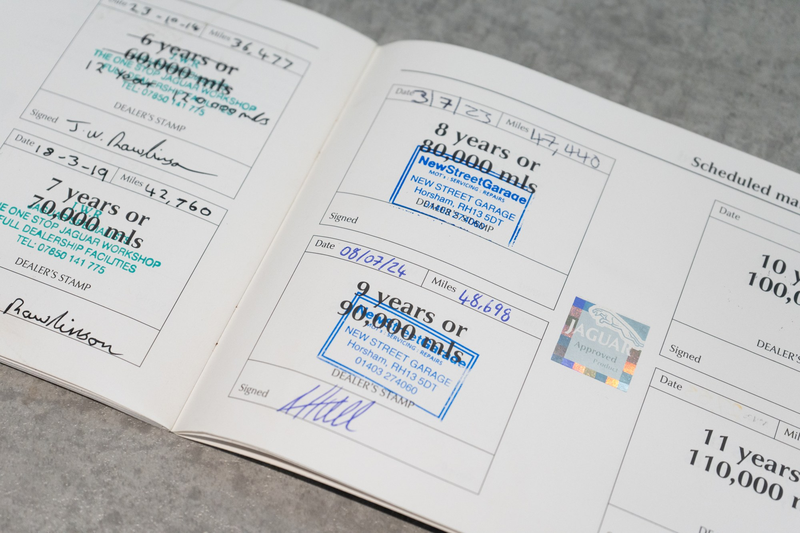 Date 23-10-14 Miles 36,477
6 years or
60,000 mls
THE ONE STOP JAGUAR WORKSHOP
TEL: 07850 141 775
DEALER'S STAMP
Signed J.W. Rawlinson
Date 18-3-19 Miles 42,760
7 years or
70,000 mls
THE ONE STOP JAGUAR WORKSHOP
FULL DEALERSHIP FACILITIES
TEL: 07850 141 775
DEALER'S STAMP
Rawlinson
Date 3/7/23 Miles 47,440
8 years or
80,000 mls
NewStreetGarage
MOT's · SERVICING · REPAIRS
NEW STREET GARAGE
Horsham, RH13 5DT
Signed
Date 08/07/24 Miles 48,698
9 years or
90,000 mls
NewStreetGarage
MOT's · SERVICING · REPAIRS
NEW STREET GARAGE
Horsham, RH13 5DT
01403 274060
DEALER'S STAMP
Signed
JAGUAR
Approved
Scheduled ma
Date
10 y
100,0
DEALER'S
Signed
Date Mil
11 years
110,000 m